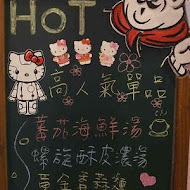 HOT
高人氣單品
蕃茄海鮮湯
螺旋酥皮濃湯
黃金香蒜麵